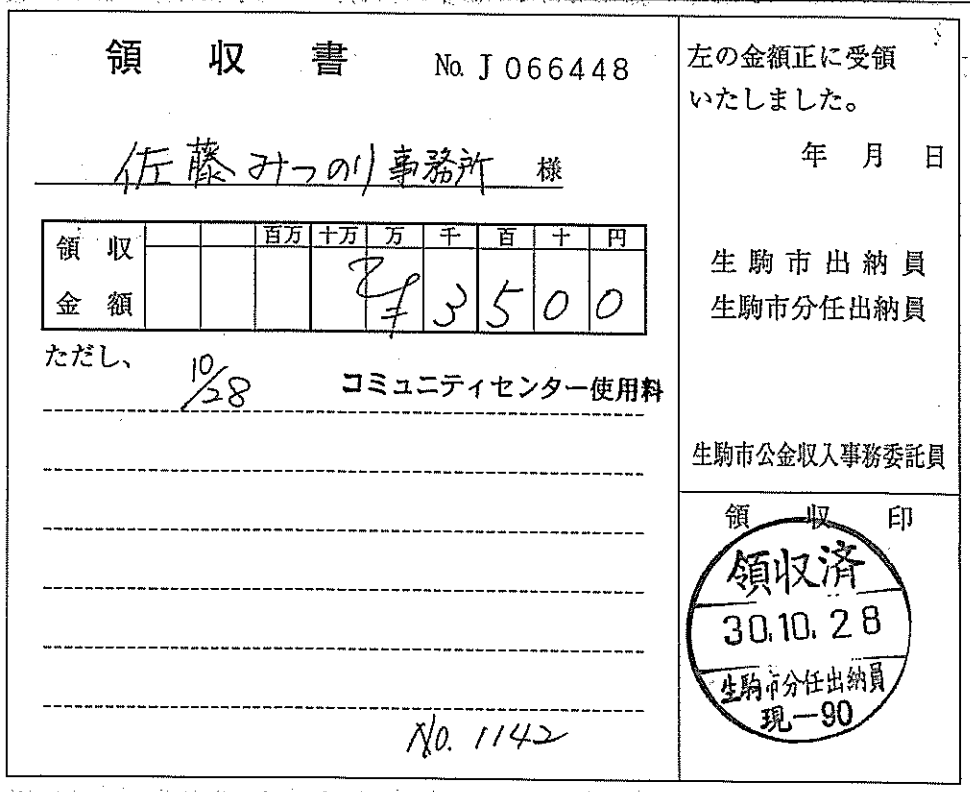 領 収 書 No. J 066448
佐藤みつのり事務所 様
領収金額
百万 十万 万 千 百 十 円
¥ 3 5 0 0
ただし、
10/28 コミュニティセンター使用料
No. 1142
左の金額正に受領
いたしました。
年 月 日
生駒市出納員
生駒市分任出納員
生駒市公金収入事務委託員
領 収 印
領収済
30.10.28
生駒市分任出納員
現-90